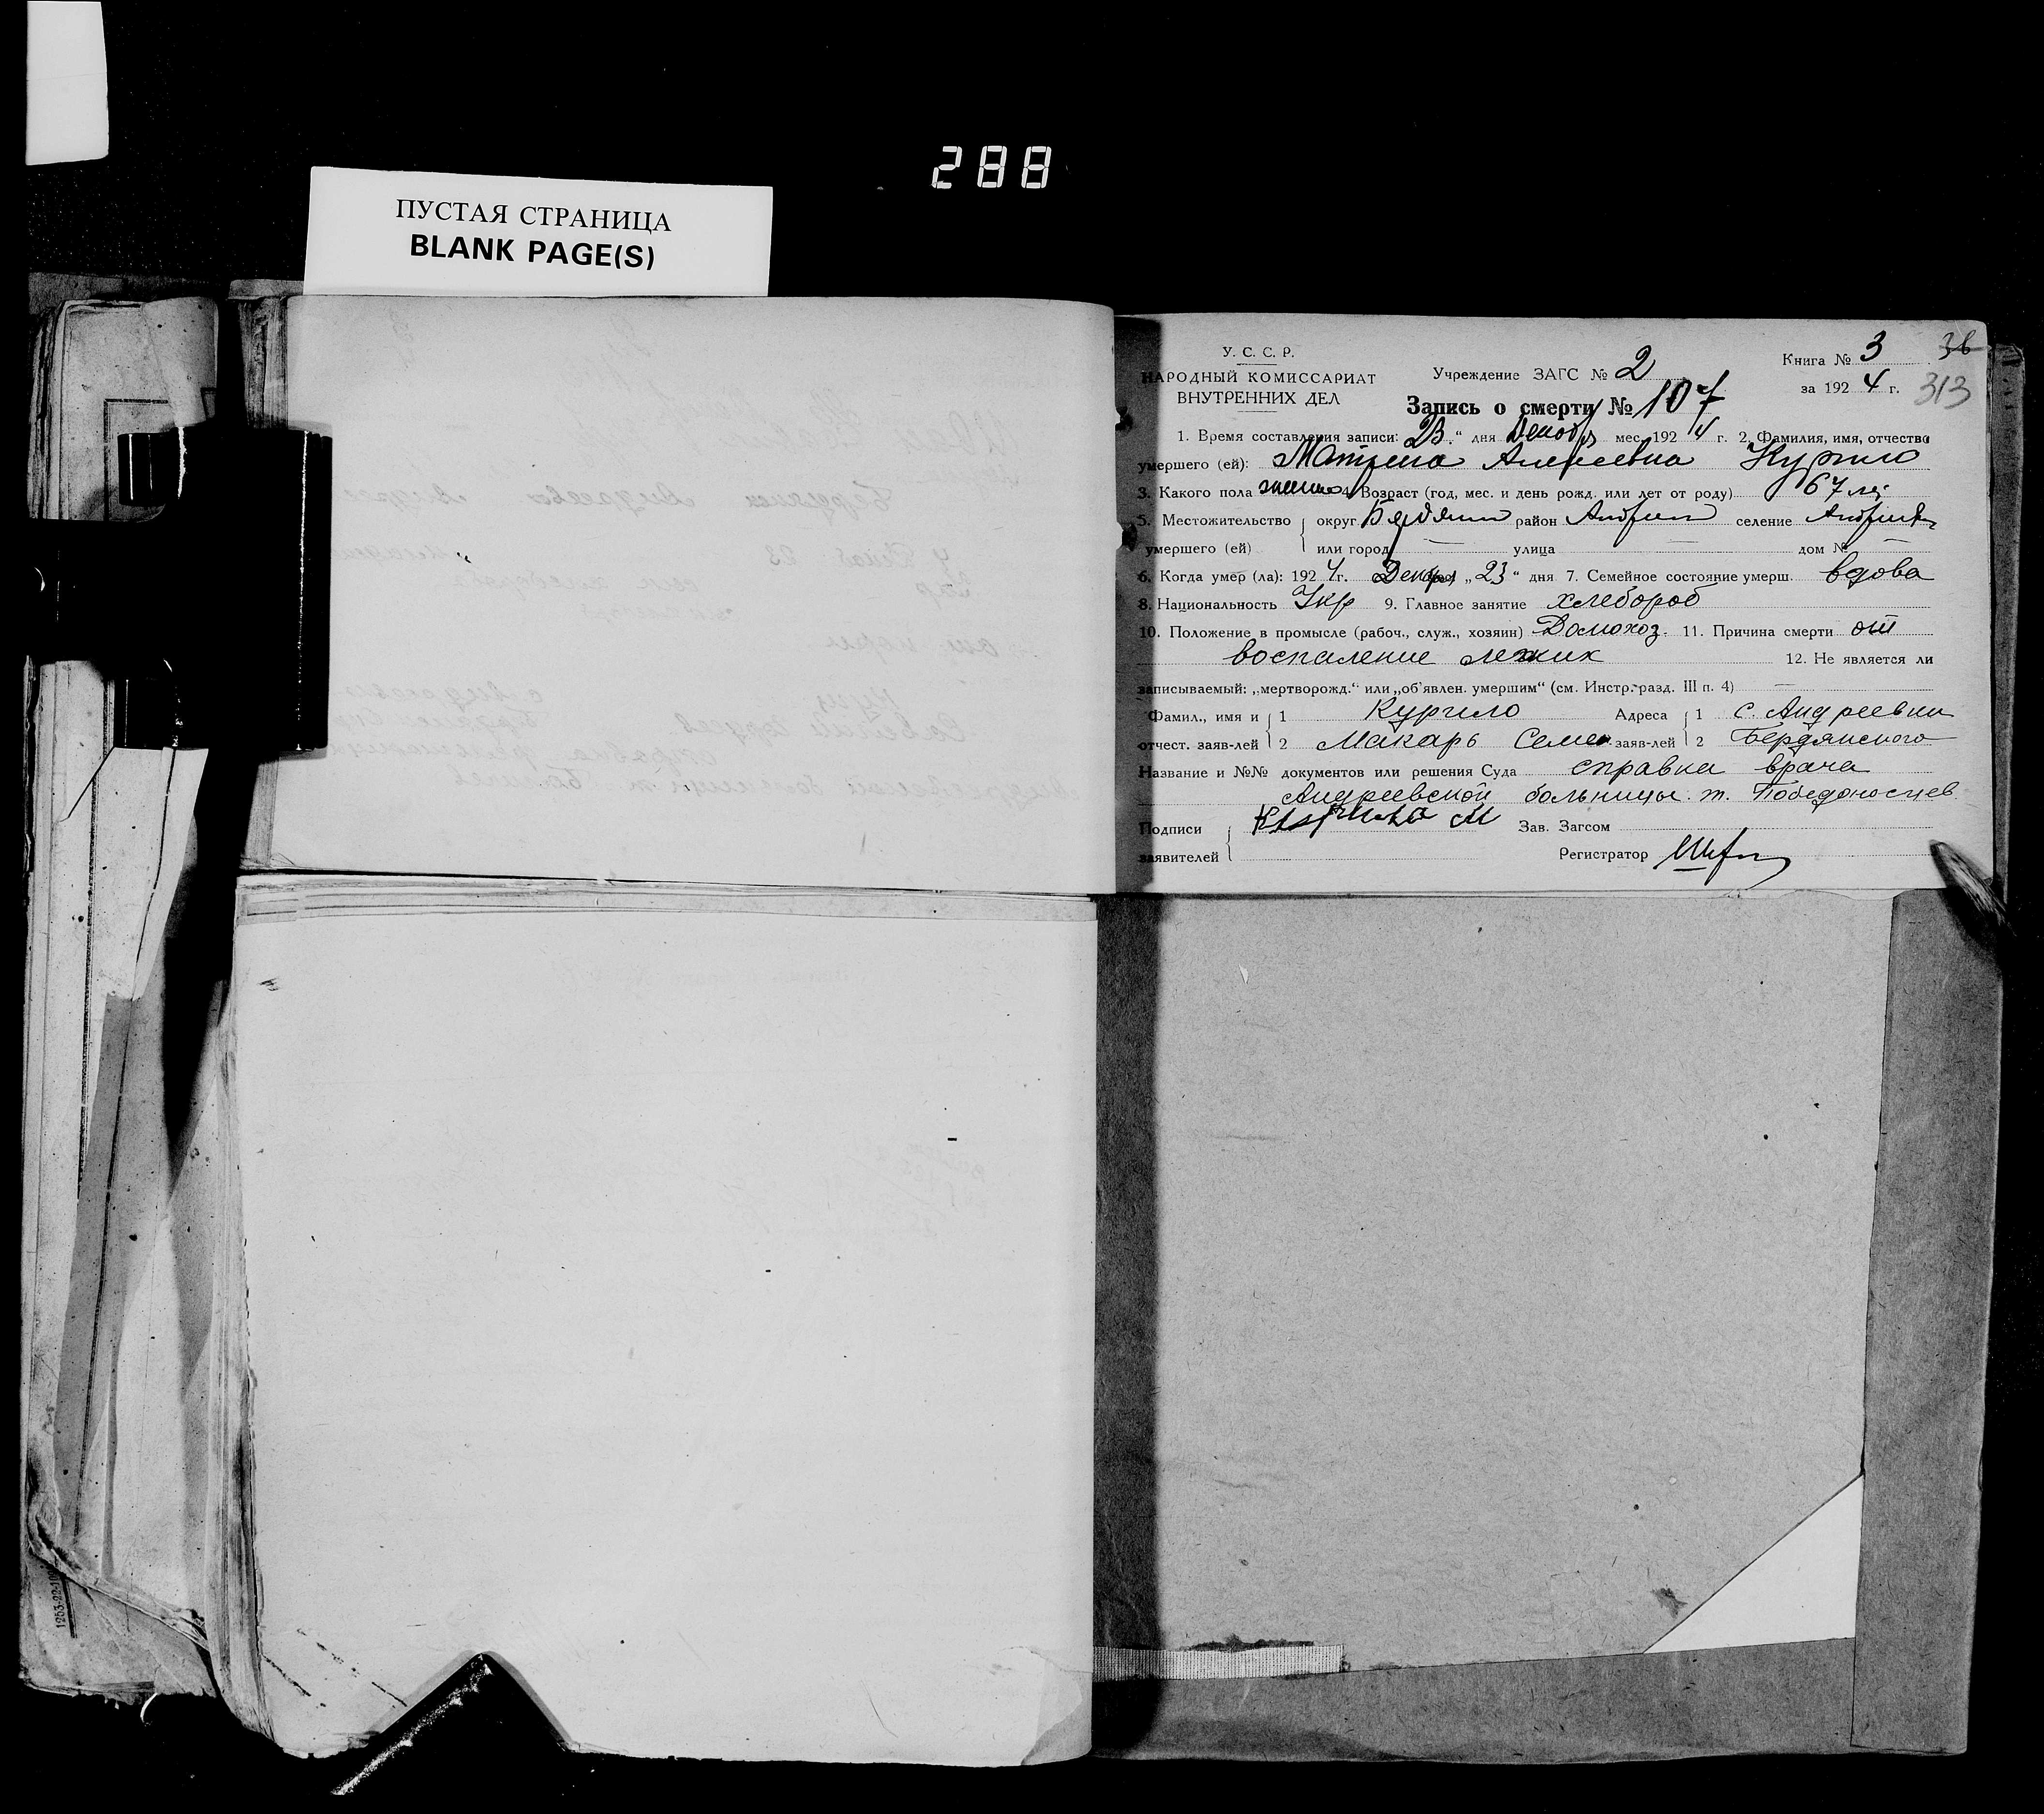 288
ПУСТАЯ СТРАНИЦА
BLANK PAGE(S)
У. С. С. Р.
НАРОДНЫЙ КОМИССАРИАТ
ВНУТРЕННИХ ДЕЛ
Учреждение ЗАГС № 2
Книга № 3 36
за 1924 г. 313
Запись о смерти № 107
1. Время составления записи: 23 “ дня Декабр мес. 1924 г. 2. Фамилия, имя, отчество
умершего (ей): Матрена Алексеевна Курило
3. Какого пола 4. Возраст (год, мес. и день рожд. или лет от роду) 67 ле
5. Местожительство округ Бердянск район селение
умершего (ей) или город — улица — дом № —
6. Когда умер (ла): 1924 г. Декабря „ 23 “ дня 7. Семейное состояние умерш. вдова
8. Национальность Укр 9. Главное занятие хлебороб
10. Положение в промысле (рабоч., служ., хозяин) Домохоз. 11. Причина смерти от
воспаление легких 12. Не является ли
записываемый: „мертворожд.“ или „об'явлен. умершим“ (см. Инстр. разд. III п. 4) —
Фамил., имя и 1 Курило Адреса 1 с. Андреевки
отчест. заяв-лей 2 Макарь Семен заяв-лей 2 Бердянского
Название и №№ документов или решения Суда справка врача
Андреевской больницы т. Победоносцев
Подписи Курило М Зав. Загсом
заявителей Регистратор